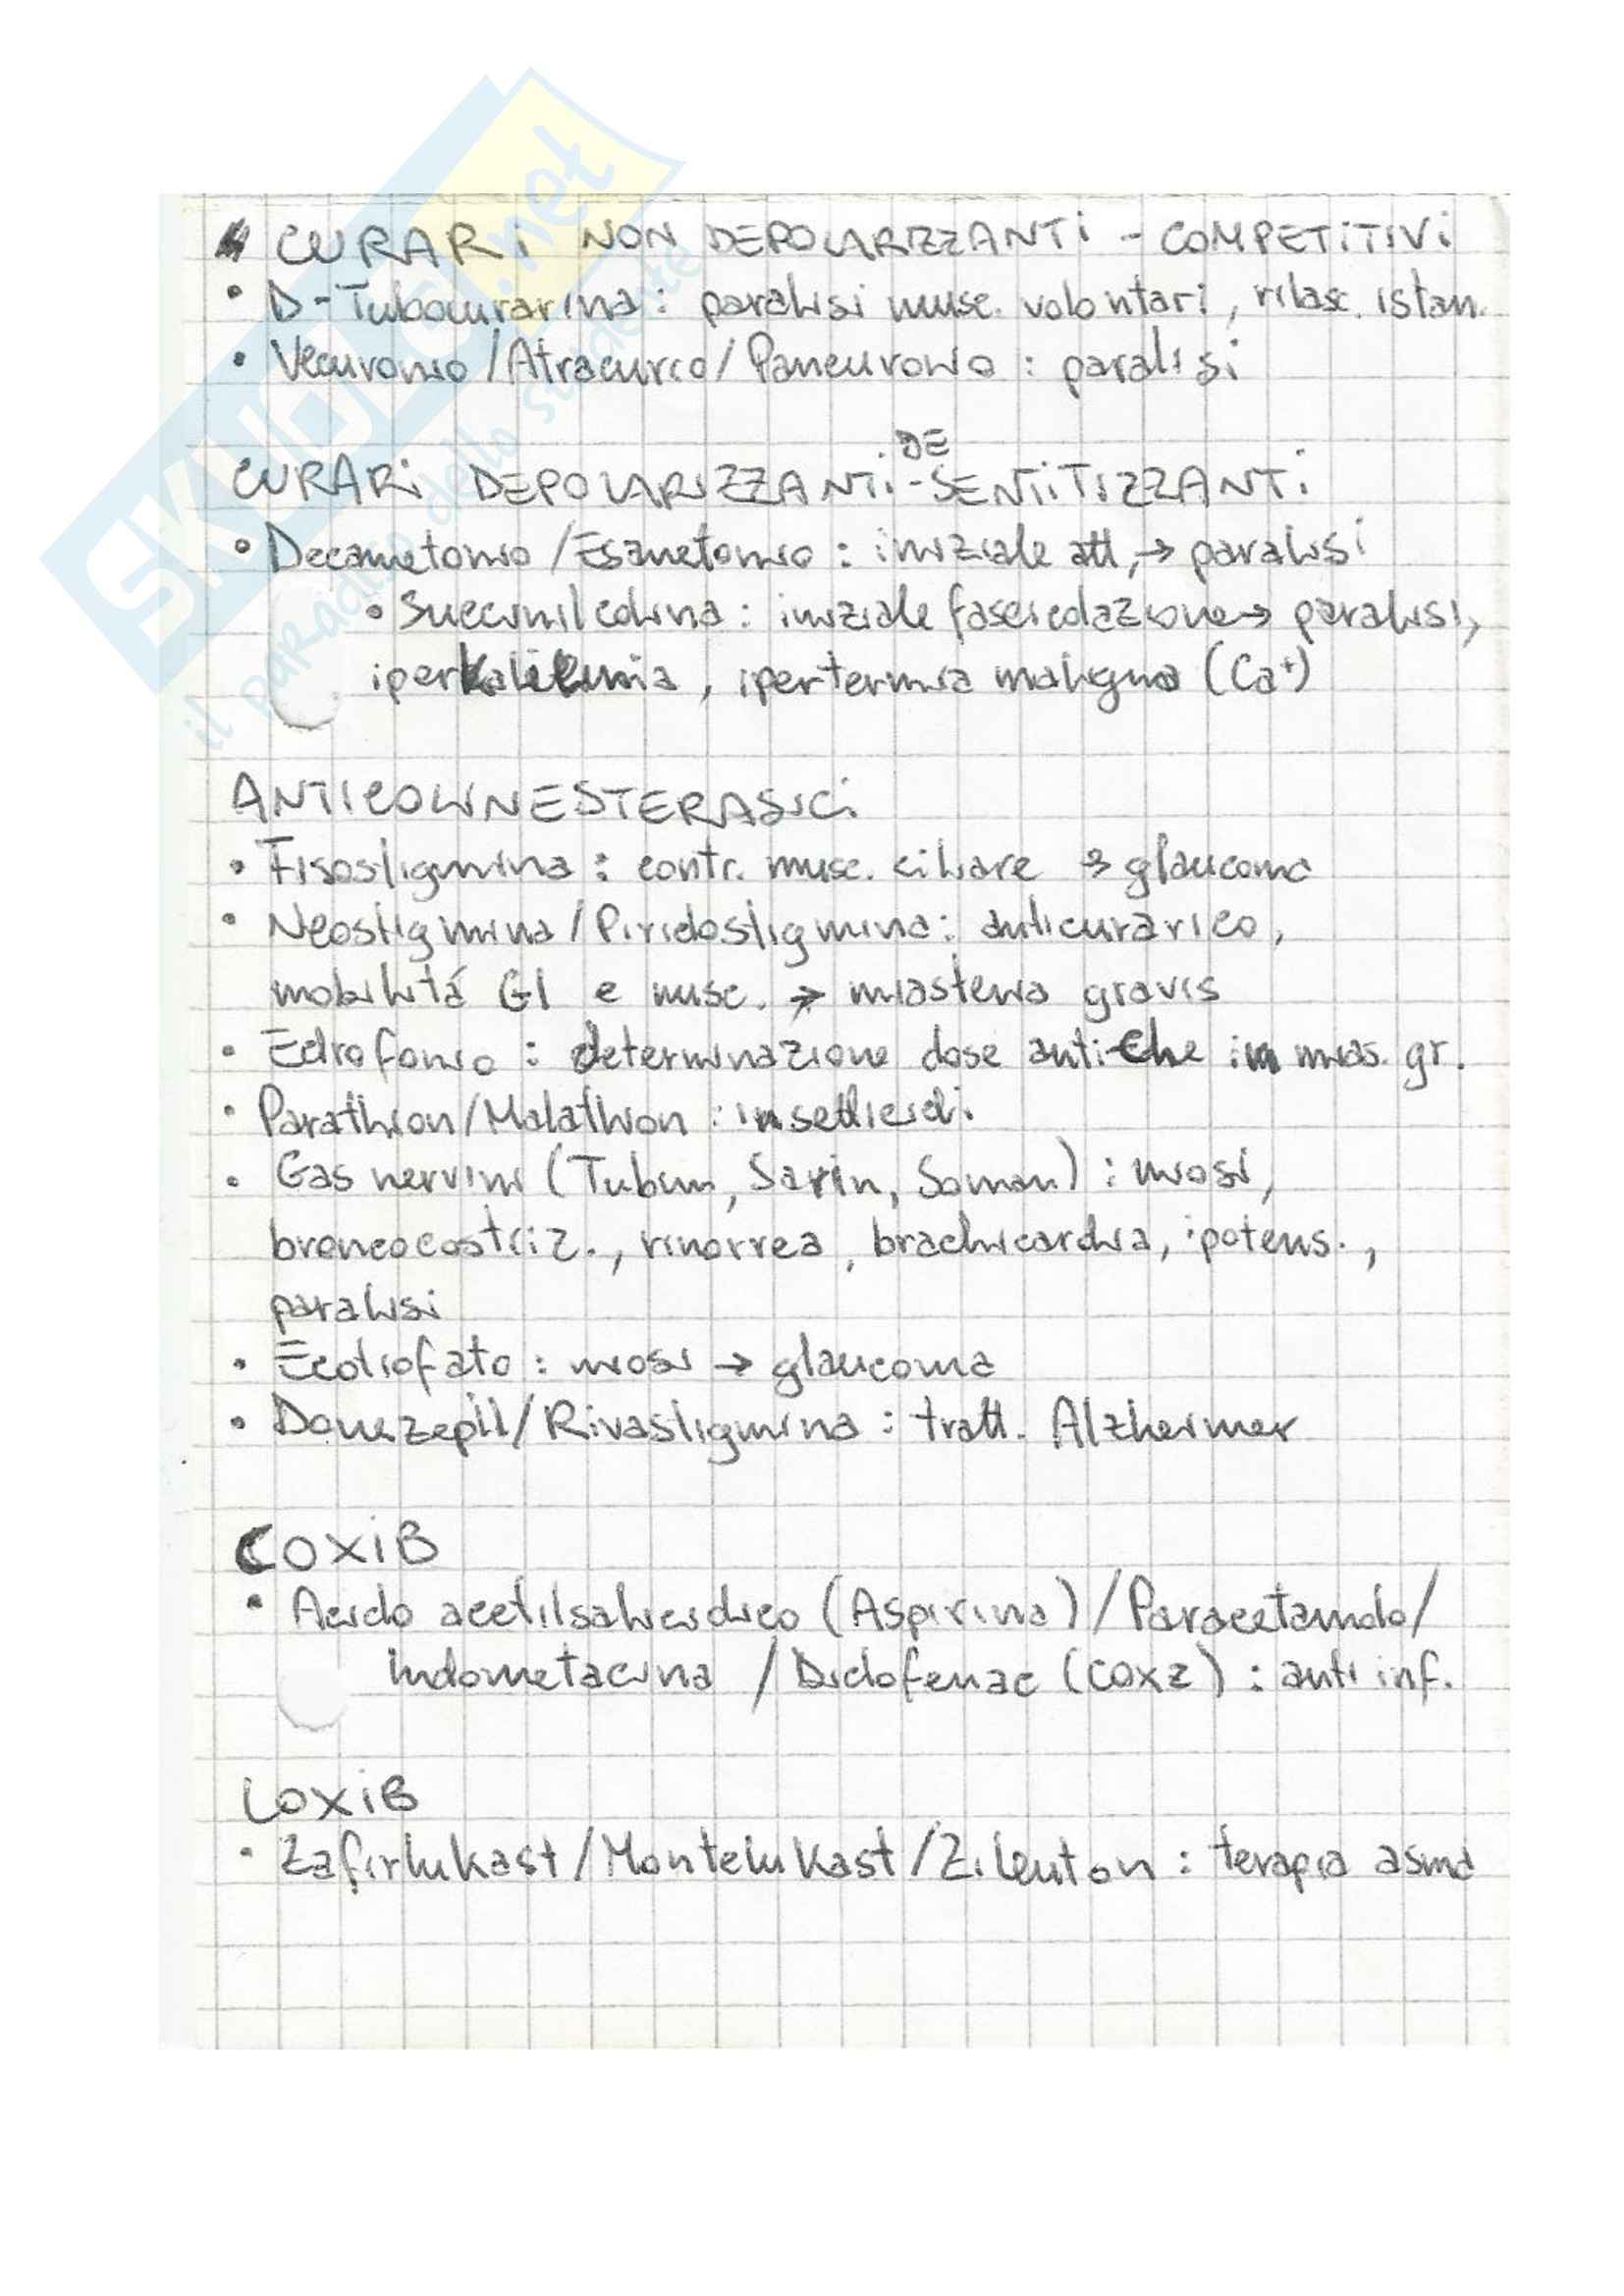 CURARI NON DEPOLARIZZANTI - COMPETITIVI
• D-Tubocurarina: paralisi musc. volontari, rilasc. istam.
• Vecuronio/Atracurco/Pancuronio: paralisi
DE
CURARI DEPOLARIZZANTI-SENTITIZZANTI
• Decametonio/Esametonio: iniziale att, → paralisi
• Succinilcolina: iniziale fascicolazione → paralisi,
iperkaliemia, ipertermia maligna (Ca⁺)
ANTICOLINESTERASICI
• Fisostigmina: contr. musc. ciliare → glaucoma
• Neostigmina/Piridostigmina: anticurarico,
mobilità GI e musc. → miastenia gravis
• Edrofonio: determinazione dose anti-Che in mias. gr.
• Parathion/Malathion: insetticidi
• Gas nervini (Tubun, Sarin, Soman): miosi,
broncocostriz., rinorrea, brachicardia, ipotens.,
paralisi
• Ecotiofato: miosi → glaucoma
• Donezepil/Rivastigmina: tratt. Alzheimer
COXIB
• Acido acetilsalicidico (Aspirina)/Paracetamolo/
Indometacina/Diclofenac (COX2): anti inf.
LOXIB
• Zafirlukast/Montelukast/Zileuton: terapia asma
SKUOLA.net
il paradiso dello studente